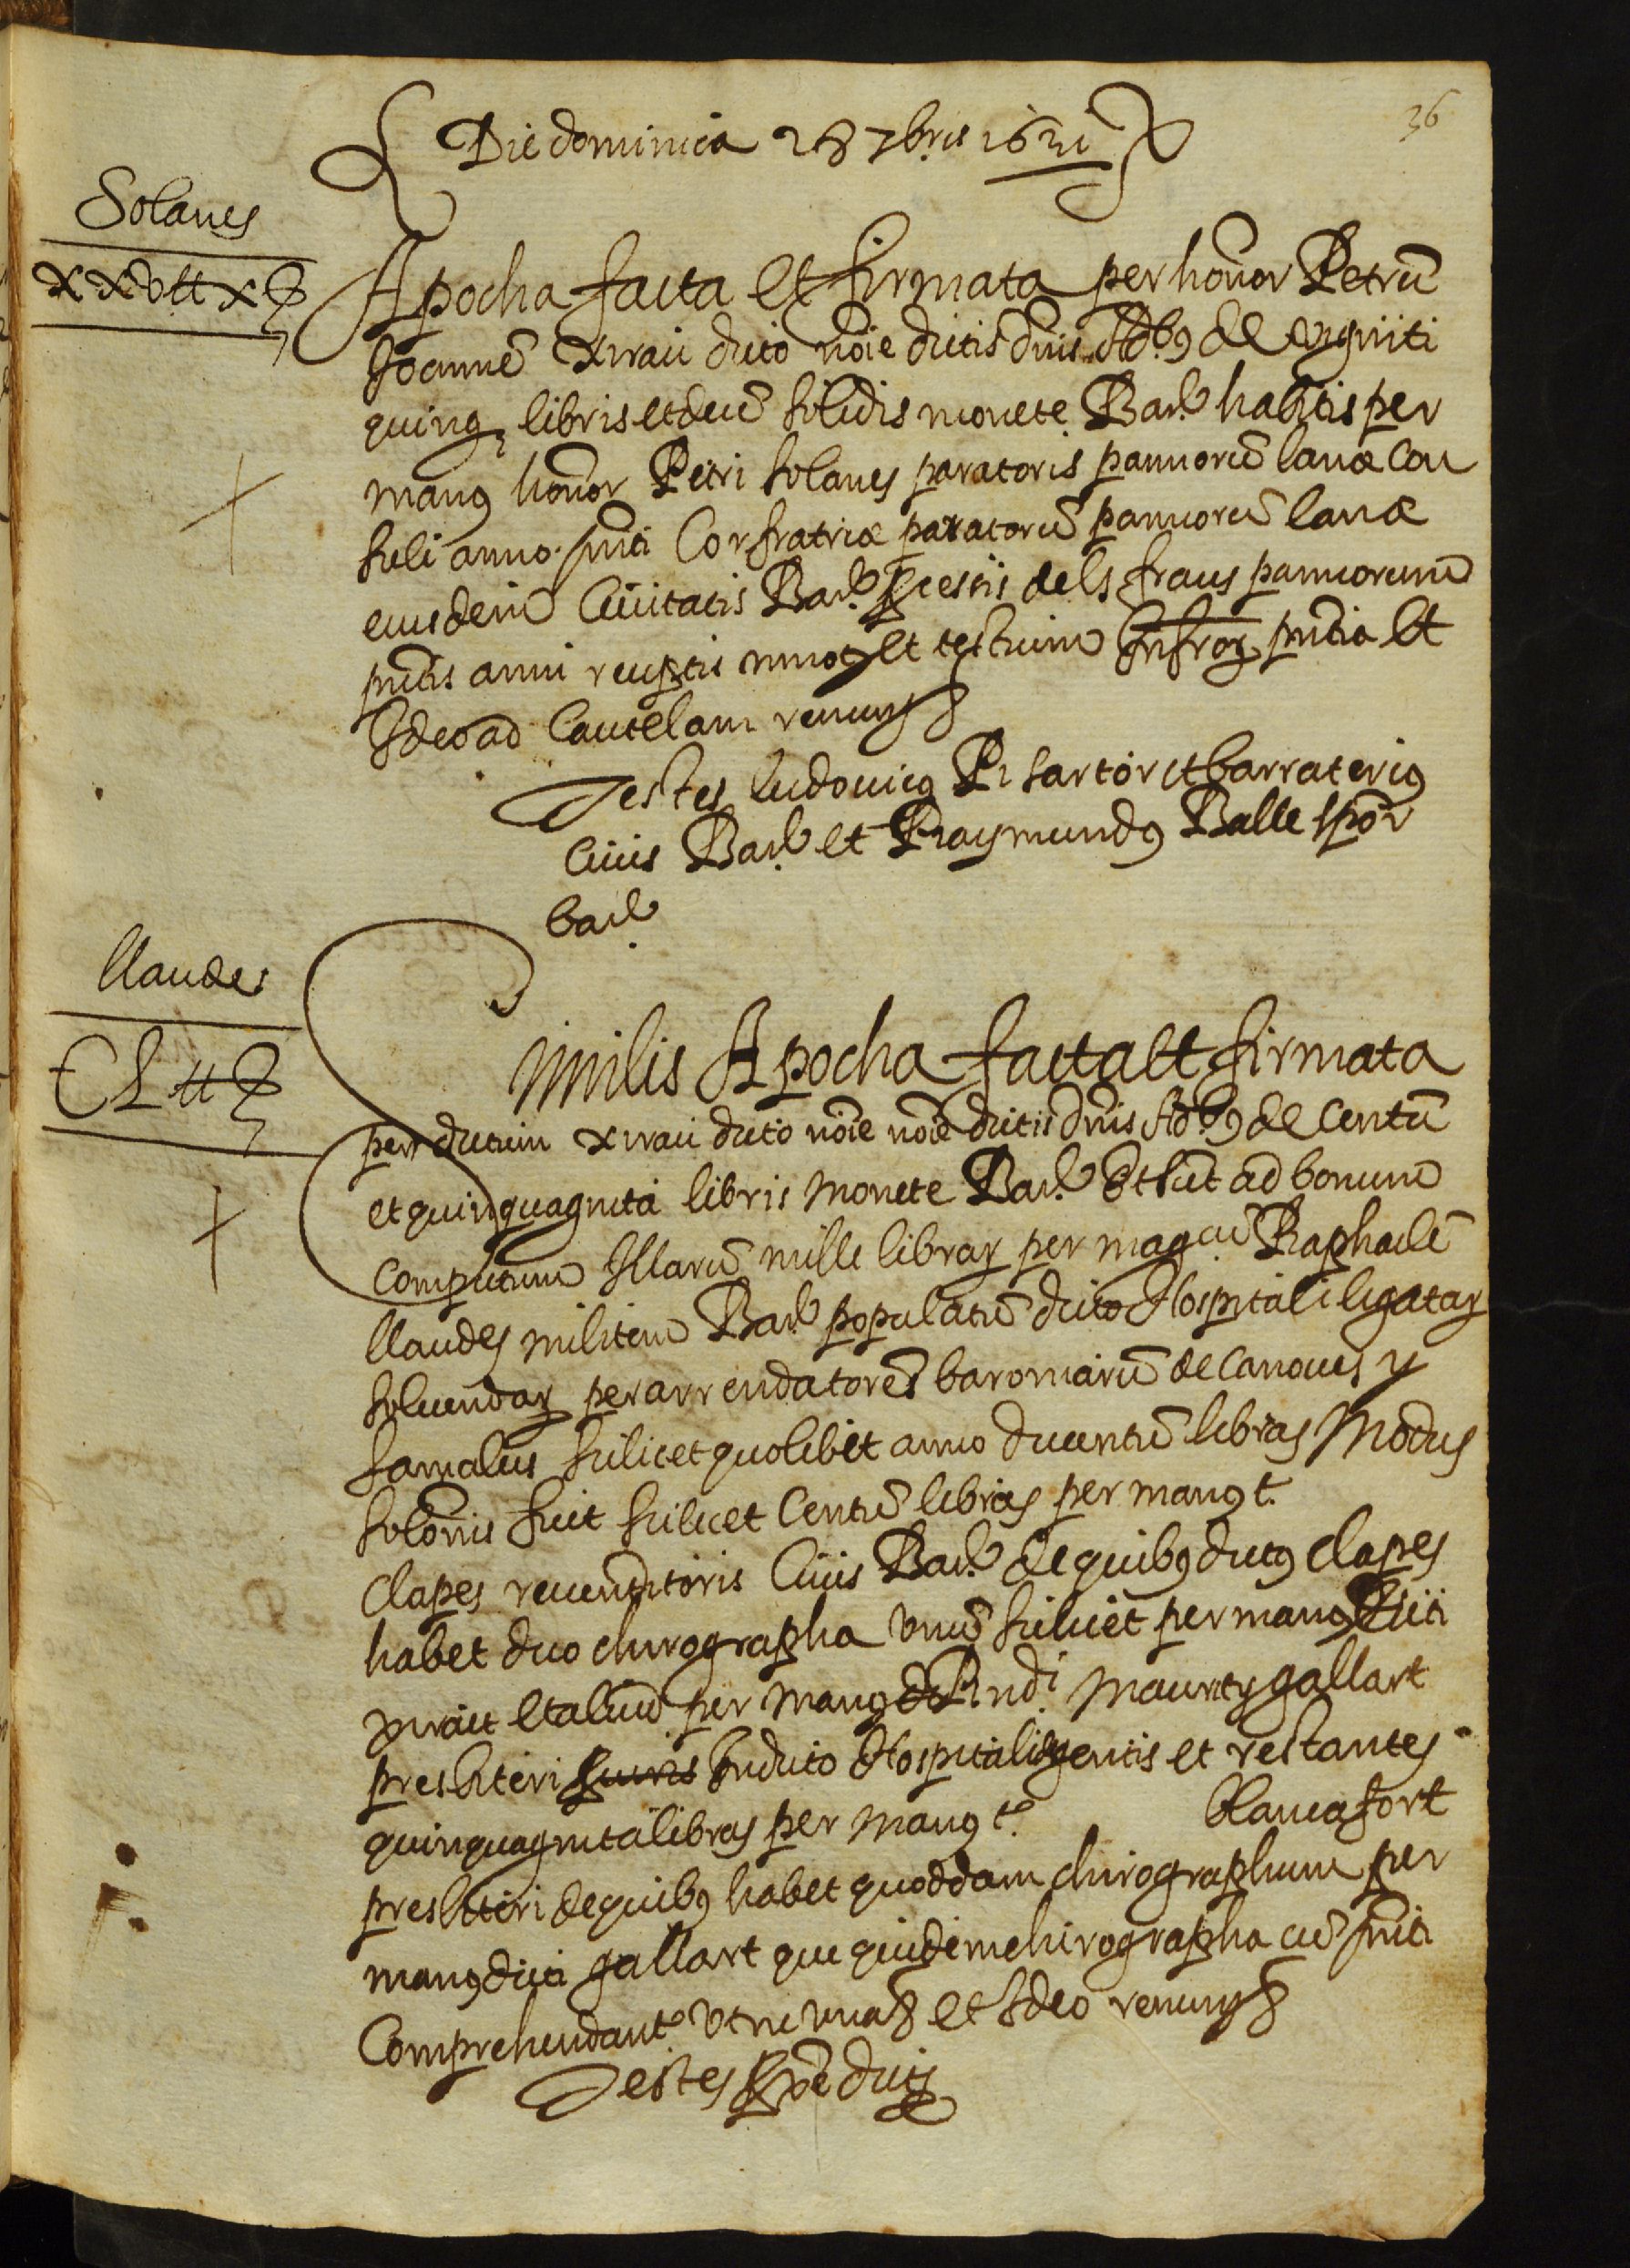 36
Die dominica 28 7bris 1631
Solanes
xxv ll x s
Apocha facta et firmata per honor Petrũ
Joannẽ Xirau dicto nõie dictis dñis Adbꝰ de viginti
quinqꝫ libris et decẽ solidis monete Barñ habitis per
manꝰ honor Petri Solanes paratoris pannorũ lanæ con
suli anno pñti Confratriæ paratorũ pannorũ lanæ
eiusdem Civitatis Barñ ꝑ cestis dels fraus pannorum
pñtis anni receptis nũoꝫ et testium infroꝝ pñtia et
Ideo ad Cautelam renunꝫ
Testes Ludovicꝰ Pi sartor et barrateriꝰ
Civis Barñ et Raymundꝰ Balle spõr
Barñ
Llaudes
CL ll s
Similis Apocha facta et firmata
per dictum Xirau dicto nõie nõie dictis dñis Adbꝰ de Centũ
et quinquaginta libris Monete Barñ Et sũt ad bonum
Computum Illarũ mille libraꝝ per magcũ Raphaelẽ
Llaudes militem Barñ populatũ dicto Hospitali legataꝝ
solvendaꝝ per arrendatores baroniarũ de Canoves y
Samalus scilicet quolibet anno ducentũ libras Modus
solõnis fuit scilicet Centũ libras per manꝰ t.
Clapes revenditoris Civis Barñ de quibꝰ dictꝰ Clapes
habet duo chirographa vnũ scilicet per manꝰ dicti
Xirau et aliud per manꝰ Rndi Mauritij Gallart
presbiteri in dicto Hospitali degentis et restantes
quinquaginta libras per manꝰ t.º Rancafort
presbiteri de quibꝰ habet quoddam chirographum per
manꝰ dicti Gallart que quidem chirographa cũ pñti
Comprehendantº vt ne vnaꝫ et Ideo renunꝫ
Testes ꝓxẽ dicti